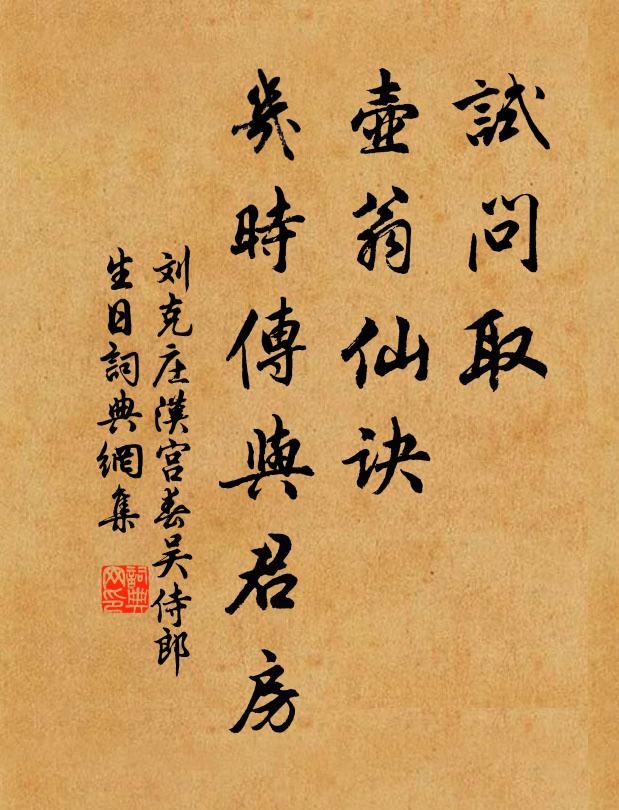 試問取
壺翁仙诀
幾時傳與君房
刘克庄漢宮春吴侍郎
生日詞典網集
詞典
网印